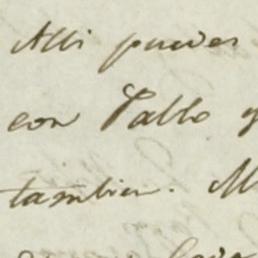 Alli puedes
con Pablo y
tambien. M